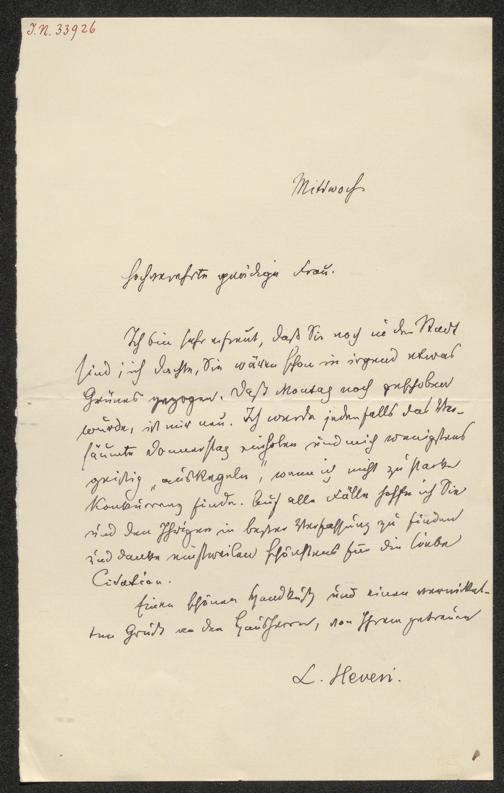 J.N. 33926
Mittwoch
Hochverehrte gnädige Frau.
Ich bin sehr erfreut, daß Sie noch in der Stadt
sind; ich dachte, Sie wären schon in irgend etwas
Grünes gezogen. Daß Montag noch geschoben
wurde, ist mir neu. Ich werde jedenfalls das Ver-
säumte Donnerstag einholen und mich wenigstens
geistig „auskegeln“, wenn ich nicht zu starke
Konkurrenz finde. Auf alle Fälle hoffe ich Sie
und den Ihrigen in bester Verfassung zu finden
und danke einstweilen schönstens für die liebe
Citation.
Einen schönen Handkuß und einen
ten Gruß an den Hausherrn, von Ihrem getreuen
L. Hevesi.